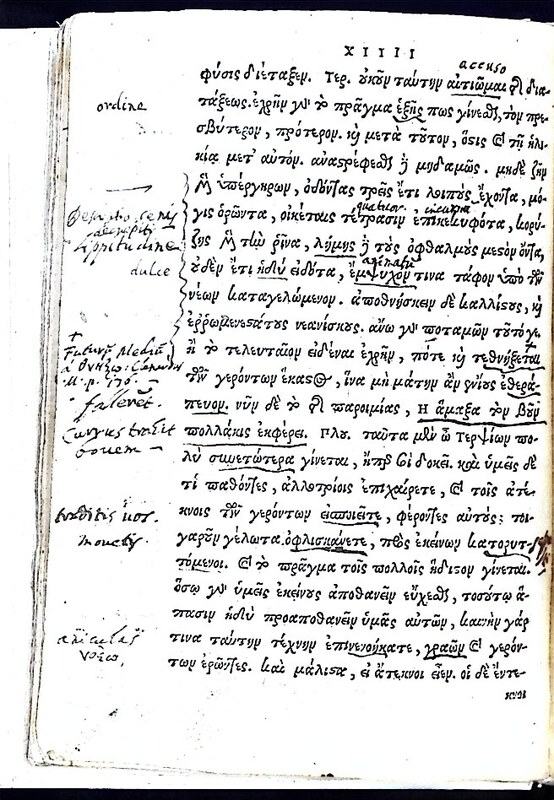 XIIII
accuso
φύσις διέταξεν. Τερ. οὐκοῦν ταύτην αἰτιῶμαι τῆς δια-
ordine
τάξεως. ἐχρῆν γὰρ τὸ πρᾶγμα ἑξῆς πως γίνεσθαι, τὸν πρε-
σβύτερον, πρότερον. καὶ μετὰ τοῦτον, ὅστις καὶ τῇ ἡλι-
κίᾳ μετ' αὐτόν. ἀναστρέφεσθαι δὲ μηδαμῶς. μηδὲ ζῆν
μὲν ὑπέργηρων, ὀδόντας τρεῖς ἔτι λοιποὺς ἔχοντα, μό-
quatuor
γις ὁρῶντα, οἰκέταις τέτρασιν ἐπικεκυφότα, κορύ-
lippitudine
ζης μὲν τὴν ῥῖνα, λήμης δὲ τοὺς ὀφθαλμοὺς μεστὸν ὄντα,
dulce
οὐδὲν ἔτι ἡδὺ εἰδότα, ἔμψυχόν τινα τάφον ὑπὸ τῶν
νέων καταγελώμενον. ἀποθνήσκειν δὲ καλλίστους, καὶ
ἐρρωμενεστάτους νεανίσκους. ἄνω γὰρ ποταμῶν τοῦτό γε.
ἢ τὸ τελευταῖον εἰδέναι ἐχρῆν, πότε καὶ τεθνήξεται
τῶν γερόντων ἕκαστος, ἵνα μὴ μάτην ἂν ἐνίους ἐθερά-
πευον. νῦν δὲ τὸ τῆς παροιμίας, Ἡ ἅμαξα τὸν βοῦν
Currus trahit
bovem
πολλάκις ἐκφέρει. Πλου. ταῦτα μὲν ὦ Τερψίων πο-
λὺ συνετώτερα γίνεται, ἤπερ σοὶ δοκεῖ. καὶ ὑμεῖς δὲ
τί παθόντες, ἀλλοτρίοις ἐπιχαίρετε, καὶ τοῖς ἀτέ-
κνοις τῶν γερόντων εἰσποιεῖτε, φέροντες αὑτούς; τοι-
γαροῦν γέλωτα ὀφλισκάνετε, πρὸς ἐκείνων κατορυτ-
τόμενοι. καὶ τὸ πρᾶγμα τοῖς πολλοῖς ἥδιστον γίνεται.
ὅσῳ γὰρ ὑμεῖς ἐκείνους ἀποθανεῖν εὔχεσθε, τοσούτῳ ἅ-
πασιν ἡδὺ προαποθανεῖν ὑμᾶς αὐτῶν, καινὴν γάρ
τινα ταύτην τέχνην ἐπινενοήκατε, γραῶν καὶ γερόν-
των ἐρῶντες. καὶ μάλιστα, εἰ ἄτεκνοι εἶεν. οἱ δὲ ἔντε-
κνοι